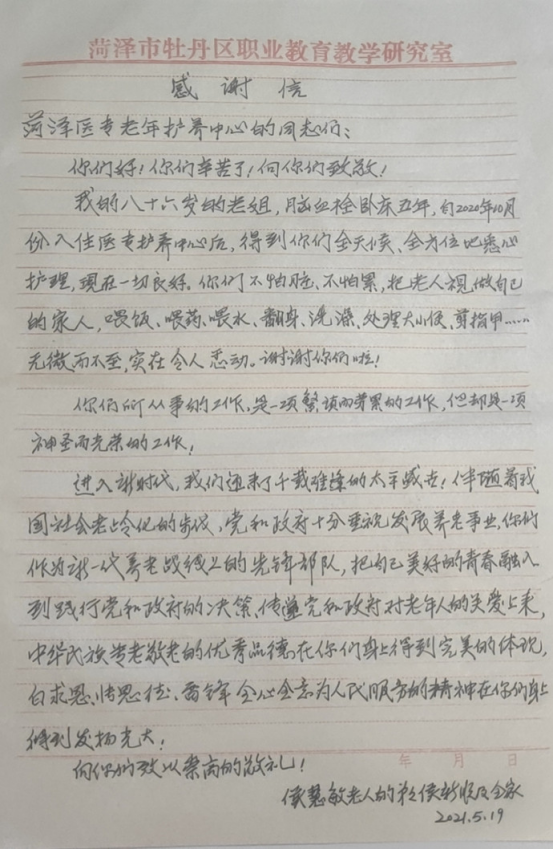 菏泽市牡丹区职业教育教学研究室
感谢信
菏泽医专老年护养中心的同志们：
你们好！你们辛苦了！向你们致敬！
我的八十六岁的老姐，脑血栓卧床五年，自2020年10月
份入住医专护养中心后，得到你们全天候、全方位地悉心
护理，现在一切良好。你们不怕脏、不怕累，把老人视做自己
的家人，喂饭、喂药、喂水、翻身、洗澡、处理大小便、剪指甲……
无微而不至，实在令人感动。谢谢你们啦！
你们所从事的工作，是一项繁琐而劳累的工作，但却是一项
神圣而光荣的工作！
进入新时代，我们迎来了千载难逢的太平盛世！伴随着我
国社会老龄化的步伐，党和政府十分重视发展养老事业，你们
作为新一代养老战线上的先锋部队，把自己美好的青春融入
到践行党和政府的决策、传递党和政府对老年人的关爱上来，
中华民族尊老敬老的优秀品德在你们身上得到完美的体现，
白求恩、张思德、雷锋全心全意为人民服务的精神在你们身上
得到发扬光大！
向你们致以崇高的敬礼！
年 月 日
侯慧敏老人的弟侯新顺及全家
2021.5.19